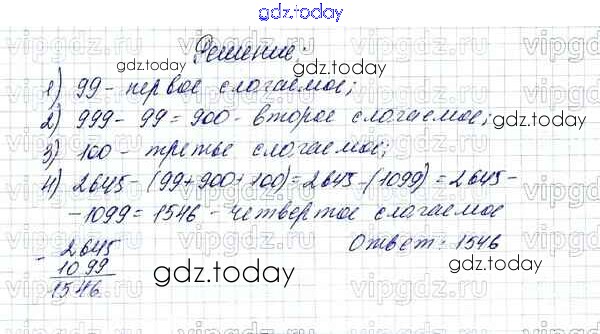 gdz.today
Решение:
1) 99 - первое слагаемое;
2) 999 - 99 = 900 - второе слагаемое;
3) 100 - третье слагаемое;
4) 2645 - (99+900+100) = 2645 - (1099) = 2645 -
- 1099 = 1546 - четвертое слагаемое
- 2645
1099
1546
Ответ: 1546
gdz.today
gdz.today
gdz.today
gdz.today
gdz.today
vipgdz.ru